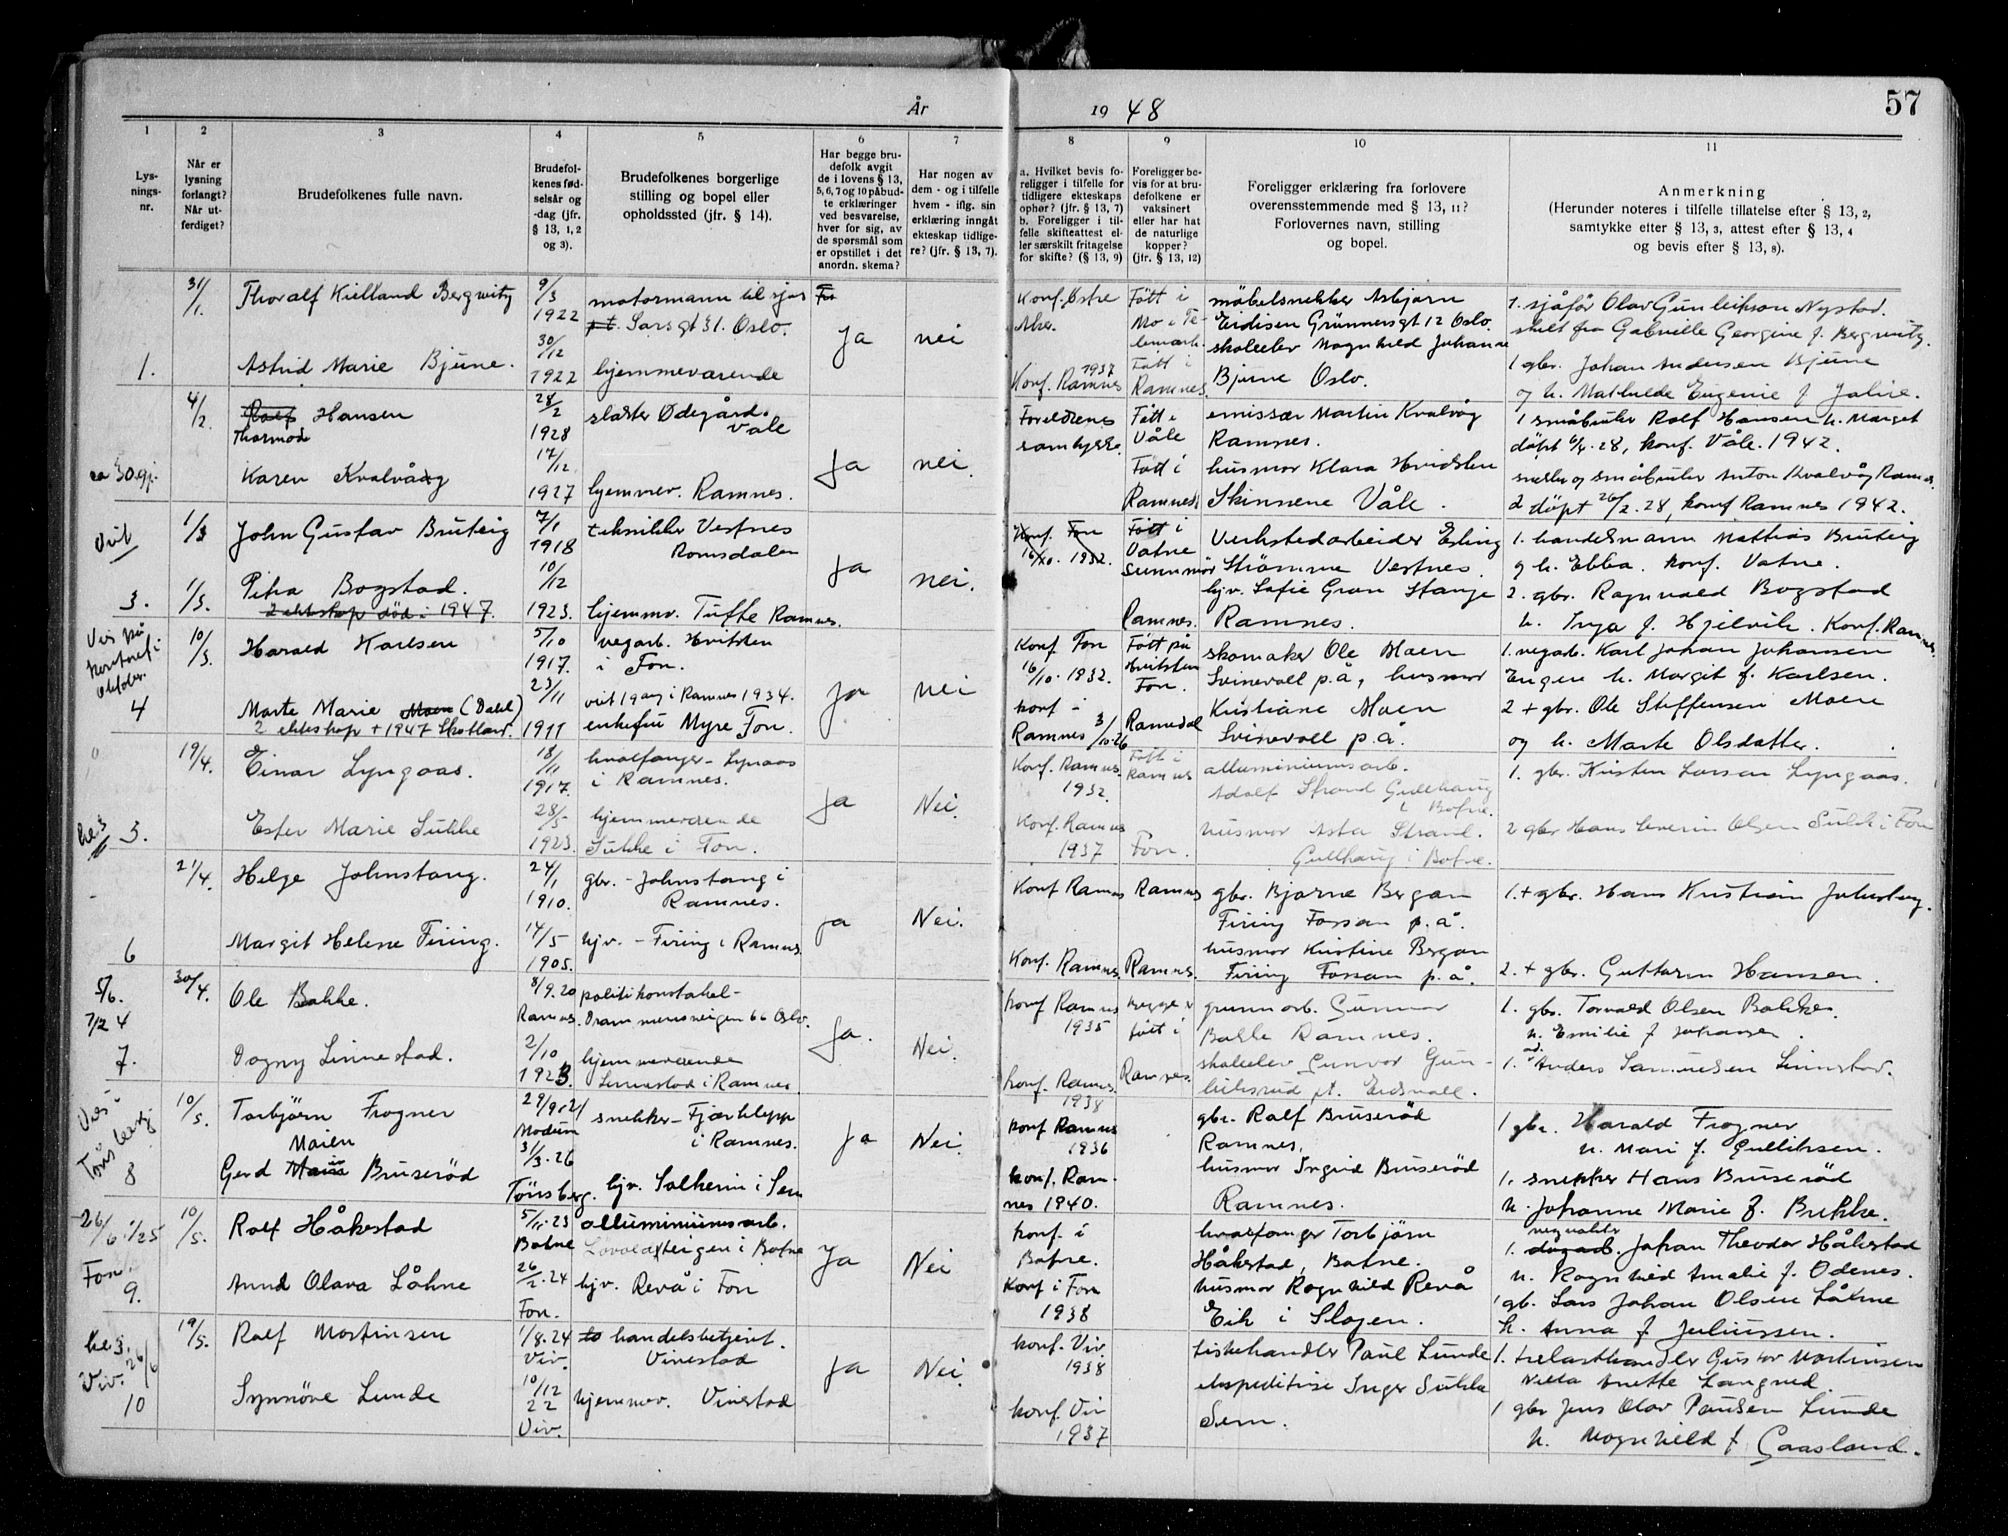 År
19 48
57
1
2
3
4
5
6
7
8
9
10
11
Lys-
nings-
nr.
Når er
lysning
forlangt?
Når ut-
ferdiget?
Brudefolkenes fulle navn.
Brudefol-
kenes fød-
selsår og
-dag (jfr.
§ 13, 1, 2
og 3).
Brudefolkenes borgerlige
stilling og bopel eller
opholdssted (jfr. § 14).
Har begge bru-
defolk avgit
de i lovens § 13,
5, 6, 7 og 10 påbud-
te erklæringer
ved besvarelse,
hver for sig, av
de spørsmål som
er opstillet i det
anordn. skema?
Har nogen av
dem - og i tilfelle
hvem - iflg. sin
erklæring inngått
ekteskap tidlige-
re? (jfr. § 13, 7).
a. Hvilket bevis fo-
religger i tilfelle for
tidligere ekteskaps
ophør? (jfr. § 13, 7)
b. Foreligger i til-
felle skifteattest el-
ler særskilt fritagelse
for skifte? (§ 13, 9)
Foreligger be-
vis for at bru-
defolkene er
vaksinert
eller har hat
de naturlige
kopper?
(jfr. § 13, 12)
Foreligger erklæring fra forlovere
overensstemmende med § 13, 11?
Forlovernes navn, stilling
og bopel.
Anmerkning
(Herunder noteres i tilfelle tillatelse efter § 13, 2,
samtykke efter § 13, 3, attest efter § 13, 4
og bevis efter § 13, 8).
1.
31/1.
Thoralf Kielland Bergwitz
9/3
1922
motormann til sjøs
pt. Sarsgt 31. Oslo.
Ja
nei
Konf. Østre
Aker.
Født i
Mo i Te-
lemark.
møbelsnekker Asbjørn
Eidisen Grünnersgt 12 Oslo.
skoleelev Magnhild Johanne
Bjune Oslo.
1. sjåfør Olav Gunleikson Nystad.
skilt fra Gabrielle Georgine f. Bergwitz.
Astrid Marie Bjune.
30/12
1922
hjemmeværende
Konf. Ramnes 1937
Født i
Ramnes
1 gbr. Johan Andersen Bjune
og h. Mathilde Eugenie f Jahre.
4/2.
Rolf Hansen
Thormod
28/2
1928
slakter Ødegård.
Våle
Ja
nei.
Foreldrenes
samtykke.
Født i
Våle
emissær Martin Kvalvåg
Ramnes.
1 småbruker Rolf Hansen h. Marget
døpt 6/4.28, konf. Våle. 1942.
Karen Kvalvåg
17/12
1927
hjemmev. Ramnes.
Født i
Ramnes.
husmor Klara Hvidsten
Skinnene Våle.
snekker og småbruker Anton Kvalvåg Ramnes.
2 døpt 26/2.28, konf Ramnes 1942.
3.
1/3
John Gustav Bruteig
7/1
1918
tekniker Vestnes
Romsdalen
Ja
nei.
Konf. Fon
16/10. 1932.
Født i
Vatne
Sunnmør
Verkstedarbeider Erling
Strømme Vestnes.
1. handelsmann Mathias Bruteig
g h. Ebba. konf. Vatne.
1/3.
Petra Bogstad.
2 ekteskap død i 1947.
10/12
1923.
hjemmv. Tufte Ramnes.
Ramnes.
hjv. Sofie Gran Stange
Ramnes.
2. gbr. Ragnvald Bogstad
h. Inga f. Hjelvik. Konf. Ramnes.
4
10/3.
Harald Karlsen
5/10
1917.
vegarb. Hvitsten
i Fon.
Ja
nei
Konf Fon
16/10. 1932.
Født på
Hvitsten
Fon.
skomaker Ole Moen
Svinevoll p.å, husmor
Kristiane Moen
Svinevoll p.å.
1. vegarb. Karl Johan Johansen
Engen h. Margit f. Karlsen.
Marte Marie Moen (Dahl)
2 ekteskap + 1947 Skotland.
23/11
1911
viet 1 gang i Ramnes 1934.
enkefru Myre Fon.
konf i
Ramnes 3/10.26
Ramsdal
2 + gbr. Ole Steffensen Moen
og h. Marte Olsdatter.
5.
19/4.
Einar Lyngaas.
18/11
1917.
hvalfanger - Lynaas
i Ramnes.
Ja
Nei.
Konf. Ramnes.
1932.
Født i
Ramnes
alluminiumsarb.
Adolf Strand Gullhaug
i Botne.
1. gbr. Kristen Larsen Lyngaas.
Ester Marie Sukke
28/5
1923.
hjemmeværende
Sukke i Fon.
Konf. Ramnes
1937
Fon.
husmor Asta Strand.
Gullhaug i Botne.
2 gbr Hans Severin Olsen Sukk i Fon
6
21/4.
Helge Johnstang.
24/1
1910.
gbr. - Johnstang i
Ramnes.
Ja
Nei.
Konf Ramnes
Ramnes
gbr. Bjarne Bergan
Firing Fossan p.å.
1.+ gbr. Hans Kristian Johnstang.
Margit Helene Firing.
14/5
1905.
hjv. - Firing i Ramnes.
Konf. Ramnes.
Ramnes.
husmor Kristine Bergan
Firing Fossan p.å.
2. + gbr. Guttorm Hansen.
5/6.
7/2 4
7.
30/4.
Ole Bakke.
8/9.20
Ramnes.
politikonstabel -
Drammensveigen 66 Oslo.
Ja.
Nei.
konf Ramnes
1935
begge er
født i
Ramnes.
grunnarb. Gunnar
Bakke Ramnes.
1. gbr. Torvald Olsen Bakke.
h. Emilie f Johansen.
Dagny Linnestad.
2/10
1923.
hjemmeværende
Linnestad i Ramnes
konf. Ramnes.
1938
skoleelev Gunvor Gun-
leiksrud pt. Eidsvoll.
1. Anders Samuelsen Linnestad.
8
10/5.
Torbjørn Frogner
29/9.21
Modum
snekker - Fjærklepp
i Ramnes.
Ja
Nei.
konf Ramnes
1936
gbr. Rolf Bruserød
Ramnes,
1 gbr. Harald Frogner
h. Mari f. Gulliksen.
Maien
Gerd Bruserød
31/3.26
Tönsberg.
hjv. Solheim i Sem
konf. Ram-
nes 1940.
husmor Ingrid Bruserød
Ramnes.
1. snekker Hans Bruserød
h. Johanne Marie f. Bukke.
26/6. 1/25
Fon.
9.
10/5.
Rolf Håkestad
5/11.23
Botne
alluminiumsarb.
i Botne
Ja
Nei
konf. i
Botne.
hvalfanger Torbjørn
Håkestad, Botne.
1. Johan Theodor Håkestad
h. Ragnhild Amalie f. Ødenes.
Anna Olava Låhne
26/2.24
Fon.
hjv. Revå i Fon
Konf i Fon
1938
husmor Ragnhild Revå
Eik i Slagen.
1 gb. Lars Johan Olsen Låhne
h. Anna f Juliussen.
kl 3.
Viv. 26/6
10
19/5.
Rolf Martinsen
1/8.24
Viv.
handelsbetjent.
Vivestad
Ja
Nei.
konf. Viv.
1938
fiskehandler Paul Lunde
1. trelasthandler Gustav Martinsen
Synnöve Lunde
10/12
22
Viv.
hjemmev. Vivestad
konf. Viv
1937
ekspeditrise Inger Sukke
Sem.
1 gbr Jens Olav Paulsen Lunde
h. Magnhild f. Gaasland.